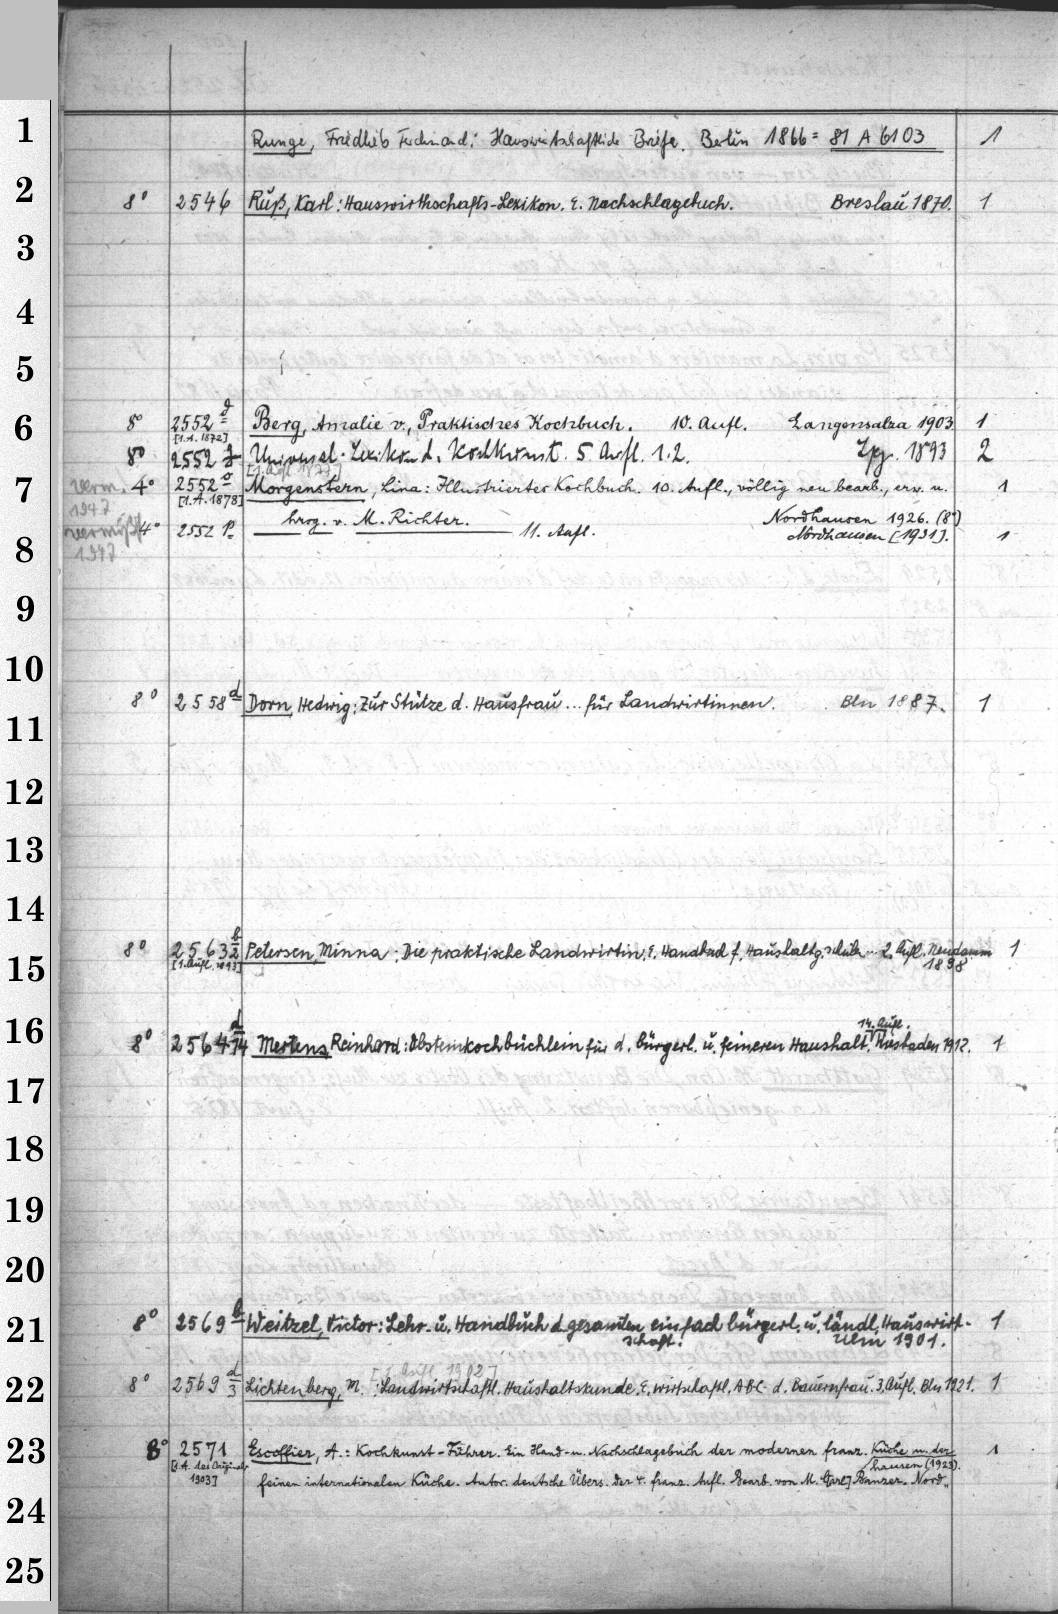 1 Runge, Friedlieb Ferdinand: Hauswirtschaftliche Briefe. Berlin 1866 = 81 A 6103 1
2 8° 2546 Ruß, Karl: Hauswirthschafts-Lexikon. E. Nachschlagebuch. Breslau 1870. 1
3
4
5
6 8° 2552 g Berg, Amalie v., Praktisches Kochbuch. 10. Aufl. Langensalza 1903 1
[1.A. 1872]
8° 2552 Universal-Lexikon d. Kochkunst. 5. Aufl. 1.2. Lpz. 1893 2
[1. Aufl. 1877]
7 verm. 1947 4° 2552 o Morgenstern, Lina: Illustriertes Kochbuch. 10. Aufl., völlig neu bearb., erw. u. 1
[1.A. 1878]
hrsg. v. M. Richter. Nordhausen 1926. (8°)
8 vermißt 1947 4° 2552 p 11. Aufl. Nordhausen [1931]. 1
9
10
8° 2558 d Dorn, Hedwig: Zur Stütze d. Hausfrau... für Landwirtinnen. Bln 1887. 1
11
12
13
14
8° 2563 Petersen, Minna: Die praktische Landwirtin. E. Handbuch f. Haushaltg.schulen... 2. Aufl. Neudamm 1
15 [1. Aufl. 1893] 1898
14. Aufl.
16 8° 2564 d Mertens, Reinhard: Obsteinkochbüchlein für d. bürgerl. u. feineren Haushalt. Wiesbaden 1912. 1
17
18
19
20
21 8° 2569 b Weitzel, Victor: Lehr- u. Handbuch d. gesamten einfach bürgerl. u. ländl. Hauswirt- 1
schaft. Ulm 1901.
[1. Aufl. 1902]
22 8° 2569 d/3 Lichtenberg, M.: Landwirtschaftl. Haushaltskunde. E. wirtschaftl. ABC d. Bauernfrau. 3. Aufl. Bln 1921. 1
23 8° 2571 Escoffier, A.: Kochkunst-Führer. Ein Hand- u. Nachschlagebuch der modernen franz. Küche u. der 1
[1.A. des Originals 1903] hausen (1923).
feinen internationalen Küche. Autor. deutsche Übers. der 4. franz. Aufl. Bearb. von M. C[arl] Banzer. Nord-
24
25